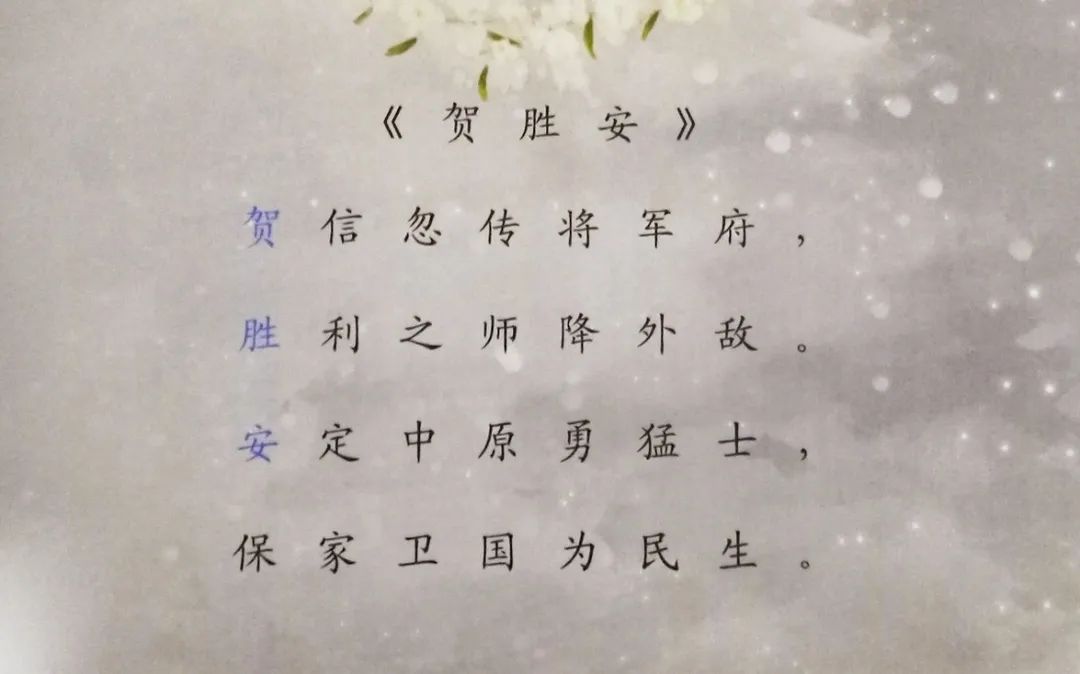 《贺胜安》
贺信忽传将军府，
胜利之师降外敌。
安定中原勇猛士，
保家卫国为民生。